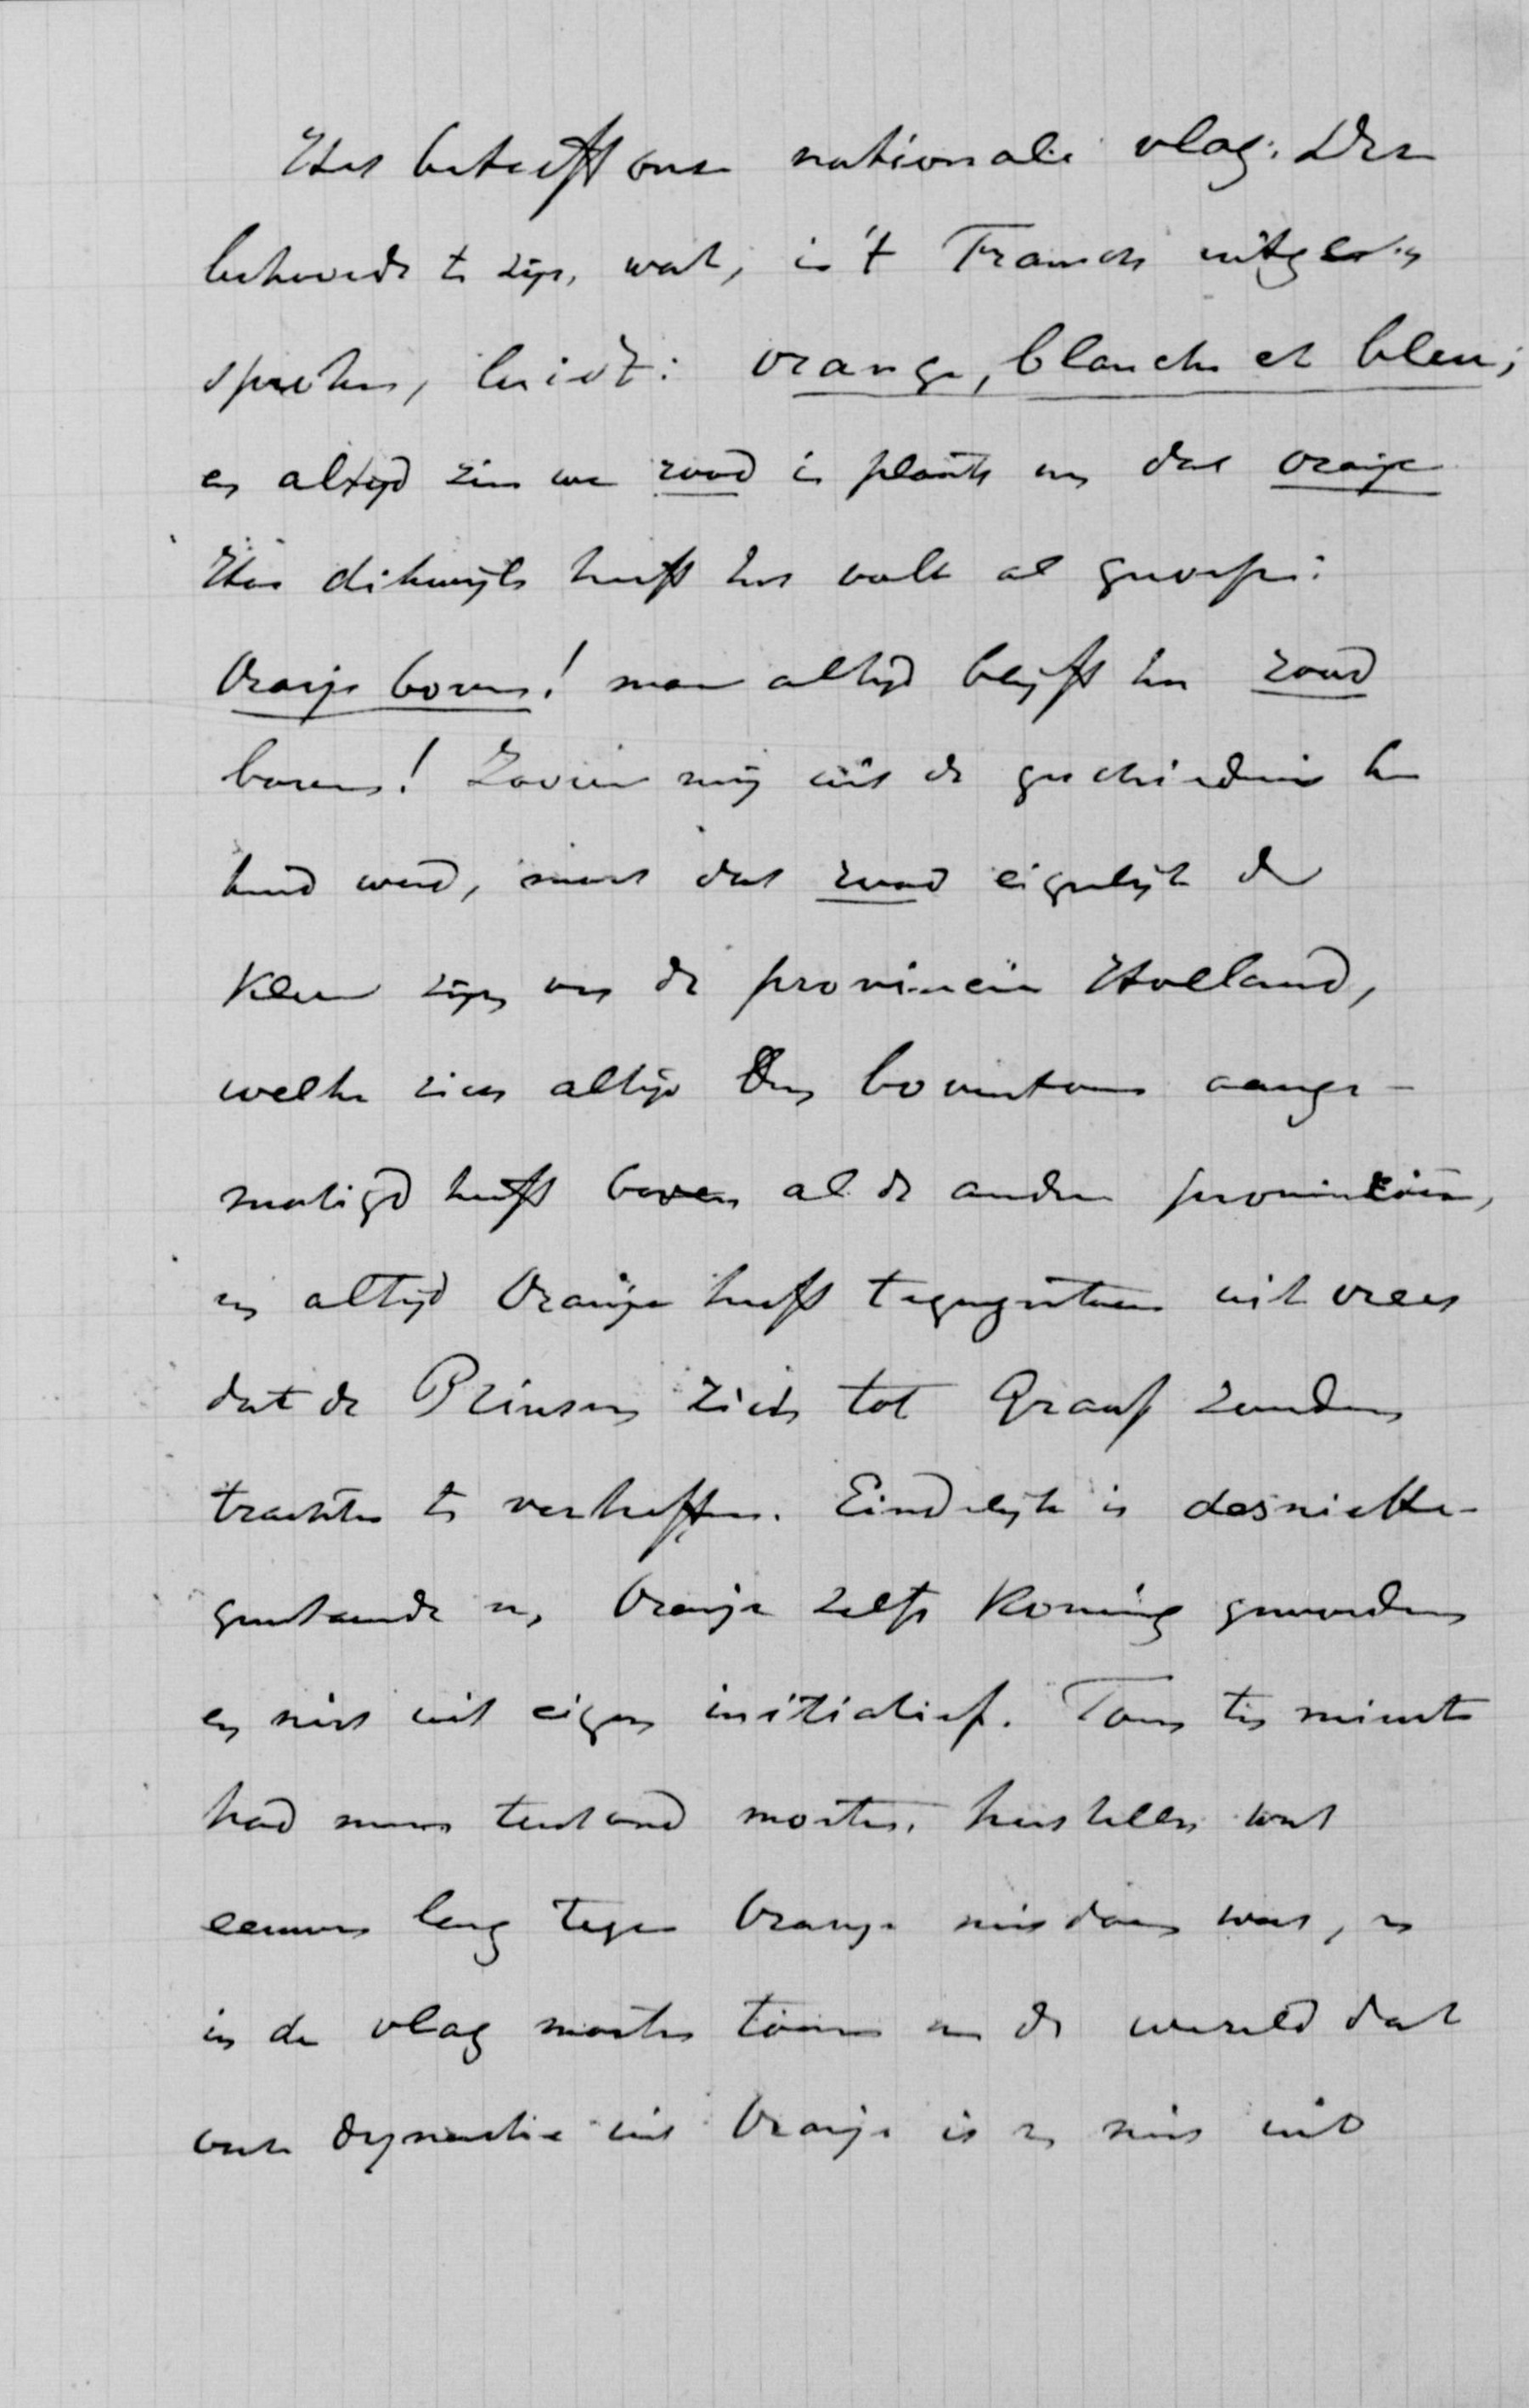 Het betreft onze nationale vlag. Deze
behoorde te zijn, wat, in 't Fransch uitge-
sproken, luidt: orange, blanche et bleu;
en altijd zien we rood in plaats van dat oranje
Hoe dikwijls heeft het volk al geroepen:
Oranje boven! maar altijd bleef het rood
boven! Zoover mij uit de geschiedenis be
kend werd, moet dat rood eigenlijk de
kleur zijn van de provincie Holland,
welke zich altijd den boventoon aange-
matigd heeft boven al de andere provinciën,
en altijd Oranje heeft tegengewerkt uit vrees
dat de Prinsen zich tot Graaf zouden
trachten te verheffen. Eindelijk is desniette-
genstaande een Oranje zelfs Koning geworden
en niet uit eigen initiatief. Toen ten minste
had men terstond moeten herstellen wat
eeuwen lang tegen Oranje misdaan was, en
in de vlag moeten toonen aan de wereld dat
onze dynastie uit Oranje is en niet uit